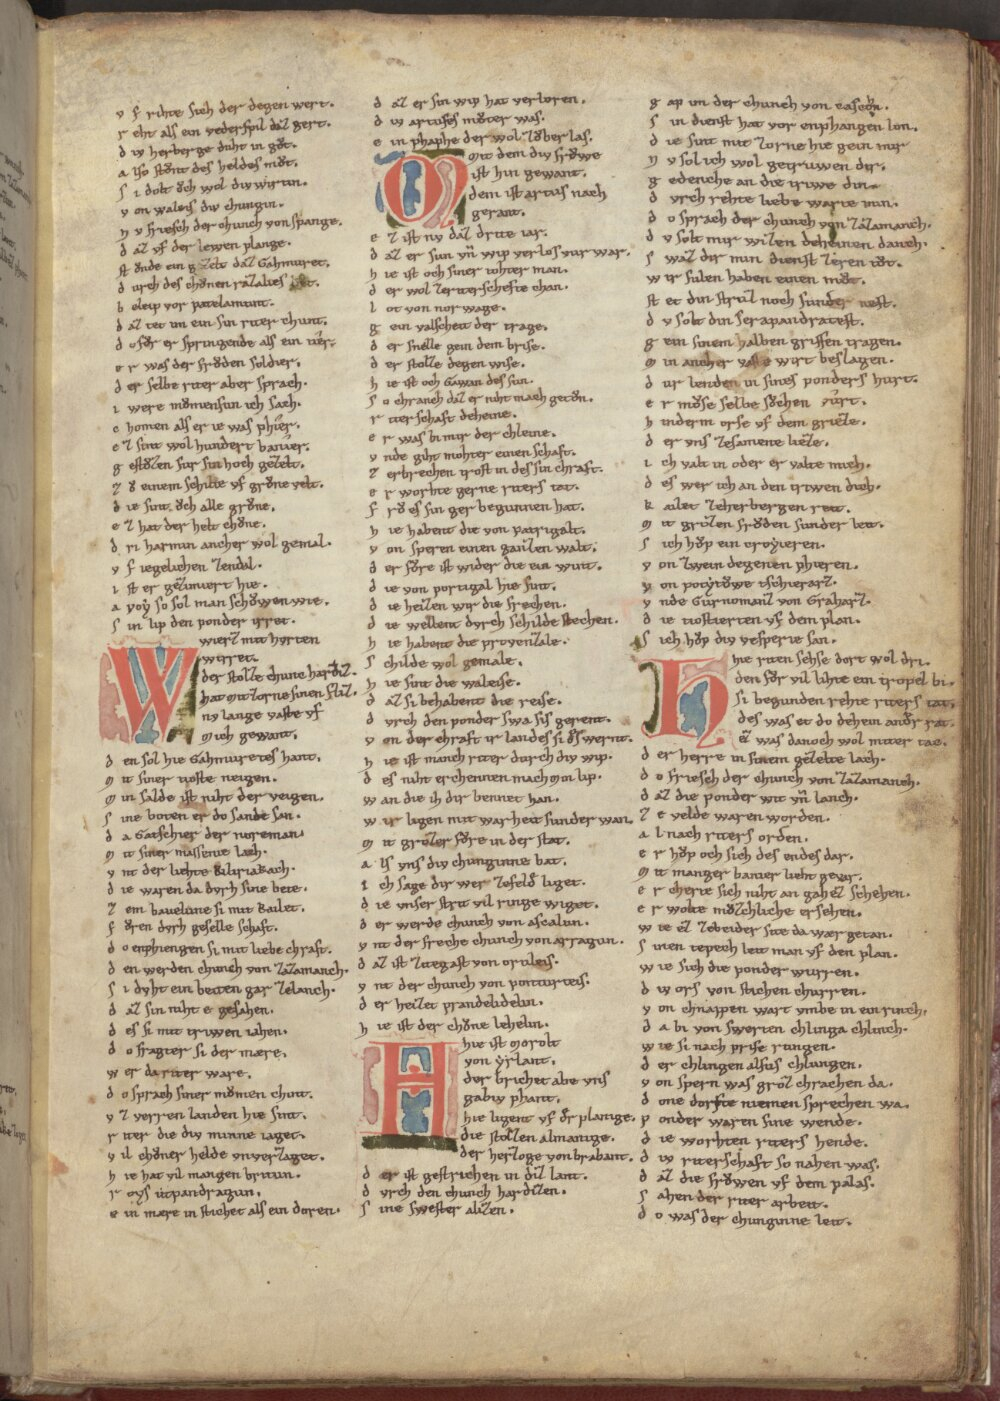 v f rihte sich der degen wert.
r eht als ein vederspil daz gert.
d iv herberge duht in gůt.
a lſo ſtůnt des heldes můt.
ſ i dolt ŏch wol div wirtin.
v on waleis div chungin.
n v frieſch der chunch von ſpange.
d az vf der lewen plange.
ſt ŏnde ein gezelt daz Gahmuret.
d urch des chŏnen razalies bet.
b eleip vor patelamunt.
d az tet im ein ſin riter chunt.
d o fůr er ſpringende als ein tier.
e r was der frŏden ſoldier.
d er ſelbe riter aber ſprach.
i were mŏmenſun ich ſach.
c homen als er ie was phier.
e z ſint wol hundert banier.
g eſtŏzen fur ſin hoch gezelt.
z ů einem ſchilte vf grŏne velt.
d ie ſint ŏch alle grŏne.
e z hat der helt chŏne.
d ri harmin ancher wol gemal.
v f iegelichen zendal.
i ſt er gezimiert hie.
a voỳ ſo ſol man ſchŏwen wie.
ſ in lip den ponder irret.
W wierz mit hyrten
wirret.
der ſtolze chunc hardiz.
hat mit zorne ſinen fliz.
nv lange vaſte vf
mich gewant.
d en ſol hie Gahmuretes hant.
m it ſiner tioſte neigen.
m in ſalde iſt niht der veigen.
ſ ine boten er do ſande ſan.
d a Gatſchier der norman.
m it ſiner maſſenie lach.
v nt der liehte kiliriakach.
d ie waren da dyrh ſine bete.
z em pavelune ſi mit kailet.
f ŏren dyrh geſelle ſchaft.
d o enphiengen ſi mit liebe chraft.
d en werden chunch von zazamanch.
ſ i dvht ein beiten gar zelanch.
d az ſin niht e geſahen.
d es ſi mit triwen iahen.
d o fragter ſi der mære.
w er da riter ware.
d o ſprach ſiner mŏmen chint.
v z verren landen hie ſint.
r iter die div minne iaget.
v il chŏner helde vnverzaget.
h ie hat vil mangen britun.
r oys ůtpandragun.
e in mære in ſtichet als ein doren.
d az er ſin wip hat verloren.
d iv artuſes mŏter was.
e in phaphe der wol zŏber las.
M mit dem div frŏwe
iſt hin gewant.
dem iſt artus nach
gerant.
e z iſt nv daz drite iar.
d az er ſun vn̄ wip verlos vur war.
h ie iſt och ſiner tohter man.
d er wol zeriterſchefte chan.
l ot von norwage.
g ein valſcheit der trage.
d er ſnelle gein dem briſe.
d er ſtolze degen wiſe.
h ie iſt och Gawan des ſun.
ſ o chranch daz er niht mach getŏn.
r iterſchaft deheine.
e r was bi mir der chleine.
v nde giht mohter einen ſchaft.
z erbrechen troſt in des ſin chraft.
e r worhte gerne riters tat.
f rů es ſin ger begunnen hat.
h ie habent die von patrigalt.
v on ſperen einen ganzen walt.
d er fŏre iſt wider die ein wint.
d ie von portugal hie ſint.
d ie heizen wir die frechen.
d ie wellent dyrch ſchilde ſtechen.
h ie habent die provenzale.
ſ childe wol gemale.
h ie ſint die waleiſe.
d az ſi behabent die reiſe.
d vrch den ponder ſwa ſis gerent.
v on der chraft ir landes ſi ds wernt.
h ie iſt manch riter durch div wip.
d es niht erchennen mach min lip.
w an die ih dir bennet han.
w ir ligen mit warheit ſunder wan.
m it grozer fŏre in der ſtat.
a ls vns div chunginne bat.
i ch ſage dir wer zefelde liget.
d ie vnſer ſtrit vil ringe wiget.
d er werde chunch von aſcalun.
v nt der freche chunch von arragun.
d az iſt zitegaſt von orileis.
v nt der chunch von ponturteis.
d er heizet prandelidelin.
h ie iſt der chŏne lehelin.
H hie iſt morolt
von ẏrlant.
der brichet abe vns
gabiv phant.
hie ligent vf dr̄ planige.
die ſtolzen almanige.
der herzoge von brabant.
d er iſt geſtrichen in diz lant.
d vrch den chunch hardizen.
ſ ine ſweſter alizen.
g ap im der chunch von caſcŏn.
ſ in dienſt hat vor enphangen lon.
d ie ſint mit zorne hie gein mir
n v ſol ich wol getruwen dir.
g edenche an die triwe din.
d vrch rehte liebe warte min.
d o ſprach der chunch von zazamanch.
d v ſolt mir wizen deheinen danch.
ſ waz dir min dienſt zeren tŏt.
w ir ſulen haben einen mŏt.
ſt et din ſtruz noch ſunder neſt.
d v ſolt din ſerapandrateſt.
g ein ſinem halben griffen tragen.
m in ancher vaſte wirt beſlagen.
d ur lenden in ſines ponders hurt.
e r mŏſe ſelbe ſŏchen vurt.
h inderm orſe vf dem grieze.
d er vns zeſamene lieze.
i ch valt in oder er valte mich.
d es wer ich an den triwen dich.
k ailet zeherbergen reit.
m it grozen frŏden ſunder leit.
ſ ich hŏp ein croyieren.
v on zwein degenen phieren.
v on poẏtŏwe tſchierarz.
v nde Gurnomanz von Graharz.
d ie tioſtierten vf dem plan.
ſ ich hŏp div veſperie ſan.
H hie riten ſehſe dort wol dri.
den fŏr vil lihte ein tropel bi.
ſi begunden rehte riters tat.
des was et do dehein andr̄ rat.
ez was danoch wol mitter tac.
d er herre in ſinem gezelte lach.
d o frieſch der chunch von zazamanch.
d az die ponder wit vn̄ lanch.
z e velde waren worden.
a l nach riters orden.
e r hŏp och ſich des endes dar.
m it manger banier lieht gevar.
e r cherte ſich niht an gahez ſchehen.
e r wolte mŏzchliche erſehen.
w ie ez zebeider ſite da wær getan.
ſ inen tepech leit man vf den plan.
w ie ſich die ponder wurren.
d iv ors von ſtichen churren.
v on chnappen wart vmbe in ein rinch.
d a bi von ſwerten chlinga chlinch.
w ie ſi nach priſe rungen.
d er chlingen alſus chlungen.
v on ſpern was groz chrachen da.
d one dorfte niemen ſprechen wa.
p onder waren ſine wende.
d ie worhten riters hende.
d iv riterſchaft ſo nahen was.
d az die frŏwen vf dem palas.
ſ ahen der riter arbeit.
d o was der chunginne leit.